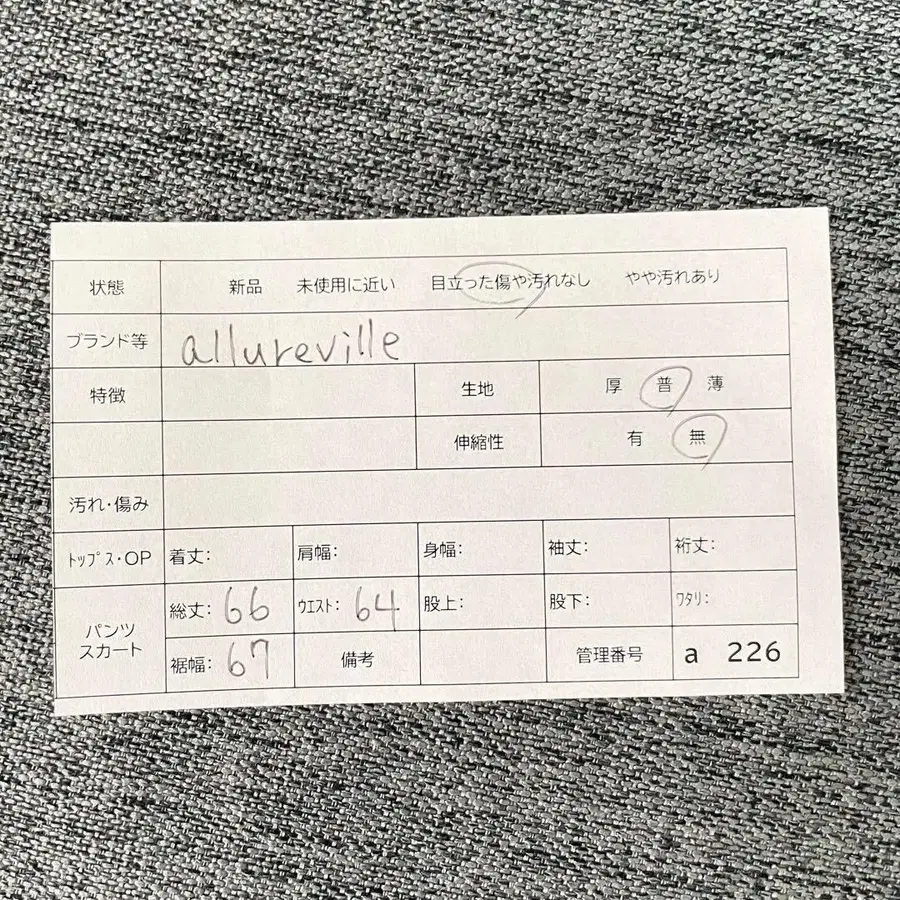 状態 新品 未使用に近い 目立った傷や汚れなし やや汚れあり
ブランド等 allureville
特徴 生地 厚 普 薄
伸縮性 有 無
汚れ・傷み
ﾄｯﾌﾟｽ・OP 着丈: 肩幅: 身幅: 袖丈: 裄丈:
パンツ
スカート
総丈: 66 ｳｴｽﾄ: 64 股上: 股下: ﾜﾀﾘ:
裾幅: 67 備考 管理番号 a 226